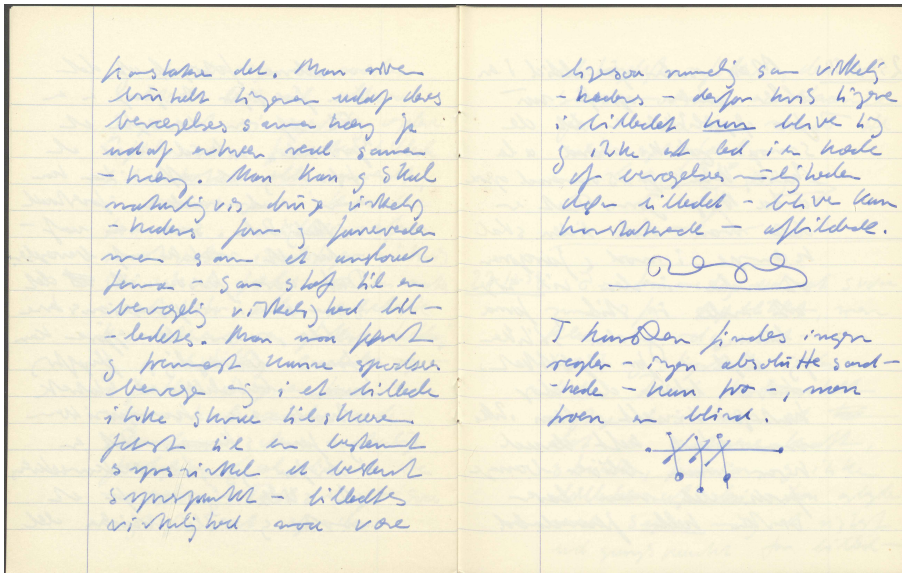 konstatere det. Man river
bevægelses sammenhæng ja
udaf enhver reel samen
-hæng. Man kan og skal
naturligvis bruge virkelig
-hedens form og farveverden
men som et
form - som stof til en
bevægelig virkelighed bil-
-ledets. Man må først
og fremmest kunne spadsere
bevæge sig i et billede
ikke skrue tilskueren
fast til en bestemt
synsvinkel et bestemt
synspunkt - billedets
virkelighed må være
ligesom som virkelig
-hedens - derfor hvis tingene
i billedet kun blive ting
og ikke et led i en kæde
af bevægelsesmuligheder
billedet - blive kun
konstaterede - afbildede.
I kunsten findes ingen
regler - ingen absolutte sand-
-heder - kun tro -, men
troen er blind.